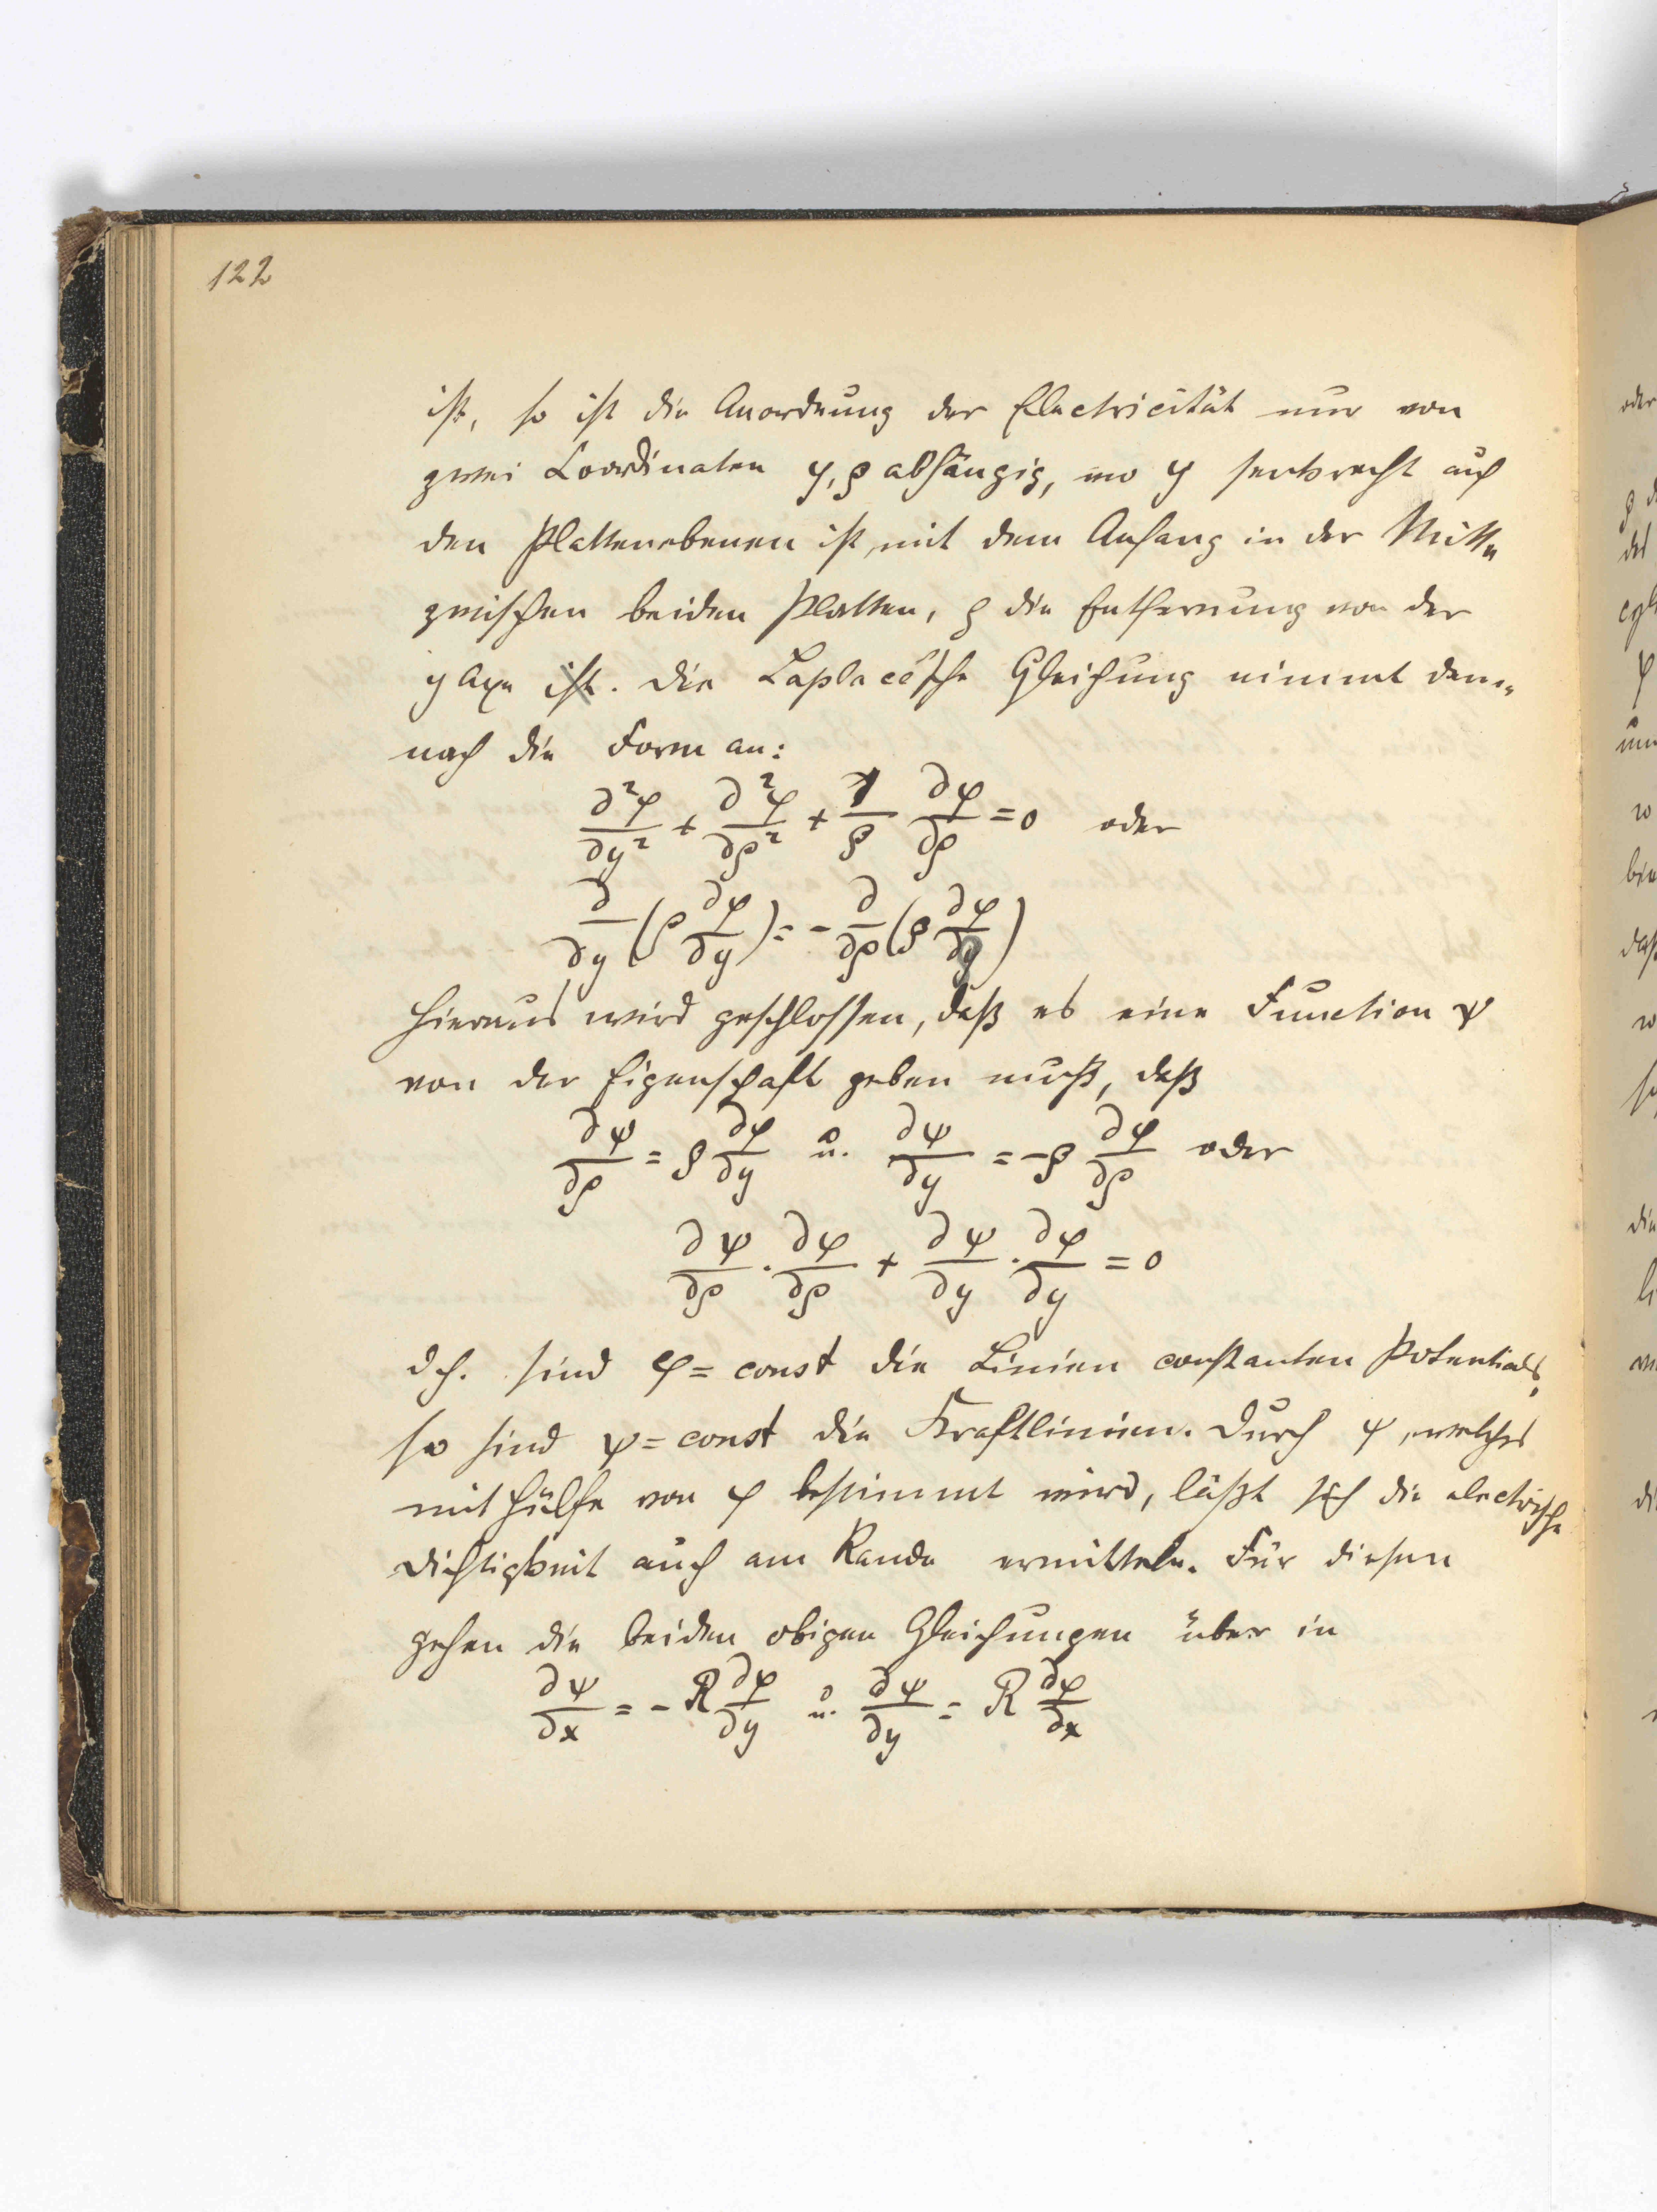 122
ist, so ist die Anordnung der Electricität nur von
zwei Coordinaten y, ρ abhängig, wo y senkrecht auf
den Plattenebenen ist, mit dem Anfang in der Mitte
zwischen beiden Platten, ρ die Entfernung von der
y Axe ist. Die Laplace'sche Gleichung nimmt dem-
nach die Form an:
∂²φ/∂y² + ∂²φ/∂ρ² + 1/ρ ∂φ/∂ρ = 0 oder
∂/∂y (ρ ∂φ/∂y) = - ∂/∂ρ (ρ ∂φ/∂ρ)
Hieraus wird geschlossen, daß es eine Function ψ
von der Eigenschaft geben muß, daß
∂ψ/∂ρ = ρ ∂φ/∂y u. ∂ψ/∂y = -ρ ∂φ/∂ρ oder
∂ψ/∂ρ · ∂φ/∂ρ + ∂ψ/∂y · ∂φ/∂y = 0
dh. sind φ = const die Linien constanten Potentials,
so sind ψ = const die Kraftlinien. Durch ψ, welches
mit Hülfe von φ bestimmt wird, läßt sich die electrische
Dichtigkeit auch am Rande ermitteln. Für diesen
gehen die beiden obigen Gleichungen über in
∂ψ/∂x = - R ∂φ/∂y u. ∂ψ/∂y = R ∂φ/∂x